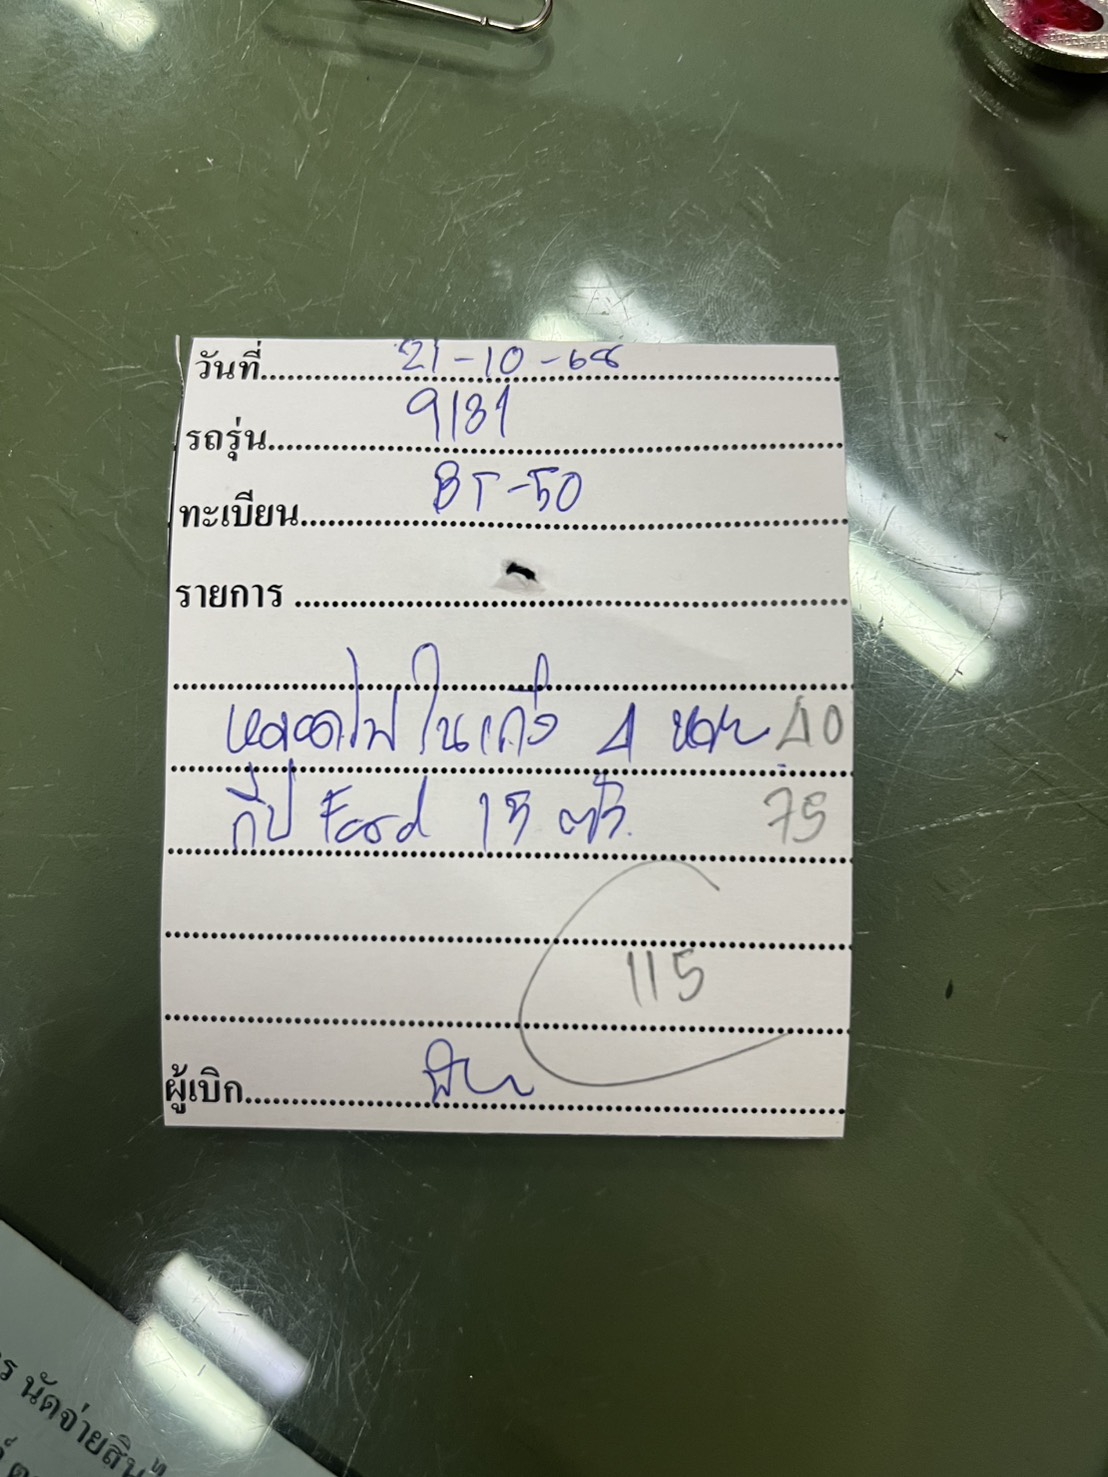 วันที่ 21-10-68
รถรุ่น 9131
ทะเบียน BT-50
รายการ
หลอดไฟในเก๋ง 4 หลอด 40
กิ๊ป Ford 15 ตัว 75
115
ผู้เบิก
นัดจ่ายสิน